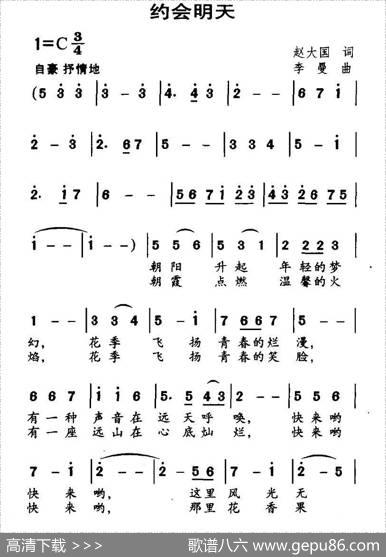 约会明天
1=C 3/4
赵大国 词
自豪 抒情地
李曼 曲
(5 3 3 | 3 - 3 | 4. 4 3 | 2 - - | 6 7 1 |
2 - 3 | 2. 6 7 | 5 - - | 3 3 4 | 5 - 1 |
2. 1 7 | 6 - - | 5 6 7 1 2 3 | 4 3 2 6 7 5 |
1 - - | 1 - - ) | 5 5 6 | 5 3 1 | 2 2 2 3 |
朝阳 升起 年轻的梦
朝霞 点燃 温馨的火
1 - - | 3 3 4 | 5 - 1 | 7 6 6 7 | 5 - - |
幻， 花季 飞扬 青春的烂漫，
焰， 花季 飞扬 青春的笑脸，
6 6 7 | 1 1 6 | 5. 5 4 3 | 2 - - | 5 5 6 |
有一种 声音在 远天呼唤， 快来哟
有一座 远山在 心底灿烂， 快来哟
7 - 1 | 2 - - | 2 - 5 6 | 7 - 1 | 2 - 5 |
快来哟， 这里风光无
快来哟， 那里花香果
高清下载 >>> 歌谱八六 www.gepu86.com